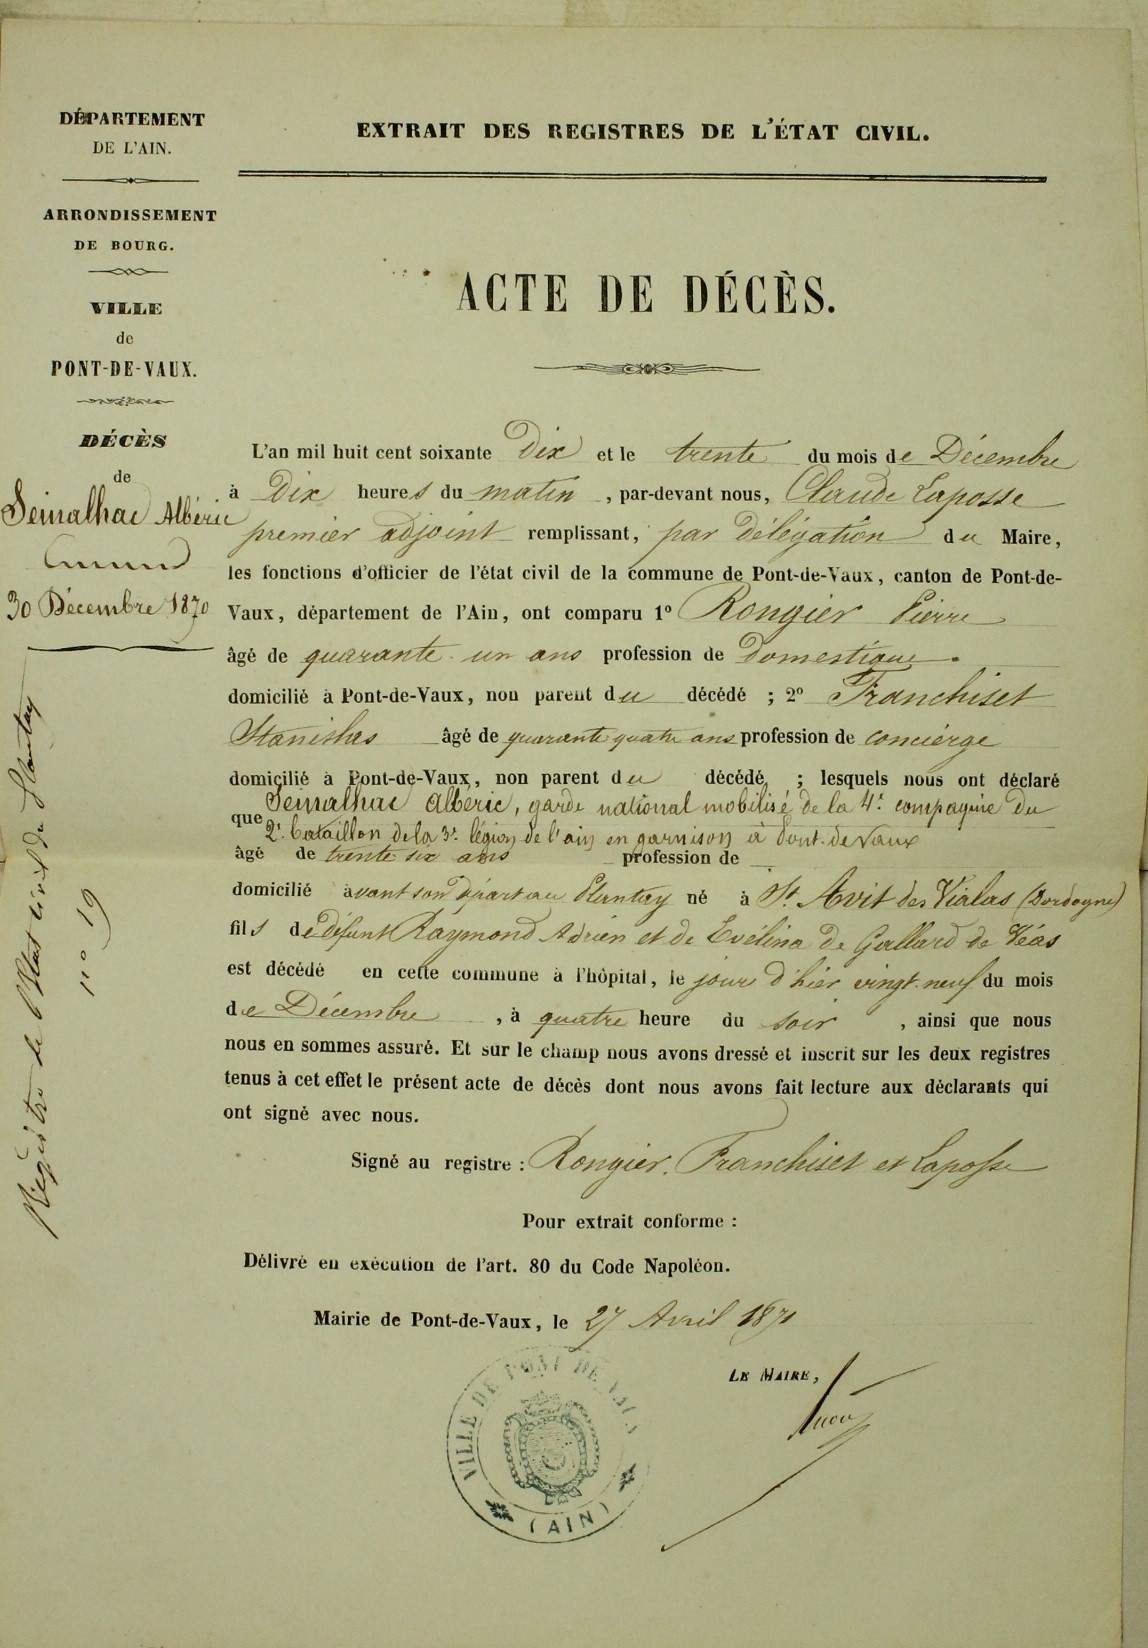 DÉPARTEMENT
DE L'AIN.
ARRONDISSEMENT
DE BOURG.
VILLE
de
PONT-DE-VAUX.
DÉCÈS
de
Seinalhac Albéric
30 Décembre 1870
Régistre de l'Etat civil du Plantay
n° 19
EXTRAIT DES REGISTRES DE L'ÉTAT CIVIL.
ACTE DE DÉCÈS.
L'an mil huit cent soixante Dix et le trente du mois de Décembre
à Dix heures du matin, par-devant nous, Claude Laposse
premier adjoint remplissant, par délégation du Maire,
les fonctions d'officier de l'état civil de la commune de Pont-de-Vaux, canton de Pont-de-
Vaux, département de l'Ain, ont comparu 1° Rongier Pierre
âgé de quarante-un ans profession de Domestique.
domicilié à Pont-de-Vaux, non parent du décédé ; 2° Franchiset
Stanislas âgé de quarante quatre ans profession de concierge
domicilié à Pont-de-Vaux, non parent du décédé ; lesquels nous ont déclaré
que Seinalhac Albéric, garde national mobilisé de la 4e compagnie du
2e bataillon de la 3e légion de l'ain en garnison à Pont-de-Vaux
âgé de trente six ans profession de
domicilié avant son départ au Plantay né à St Avit des Vialas (Dordogne)
fils de défunt Raymond Adrien et de Evélina de Gallard de Véas
est décédé en cette commune à l'hôpital, le jour d'hier vingt-neuf du mois
de Décembre, à quatre heure du soir, ainsi que nous
nous en sommes assuré. Et sur le champ nous avons dressé et inscrit sur les deux registres
tenus à cet effet le présent acte de décès dont nous avons fait lecture aux déclarants qui
ont signé avec nous.
Signé au registre : Rongier, Franchiset et Laposse
Pour extrait conforme :
Délivré en exécution de l'art. 80 du Code Napoléon.
Mairie de Pont-de-Vaux, le 27 Avril 1871
LE MAIRE,
VILLE DE PONT DE VAUX
(AIN)